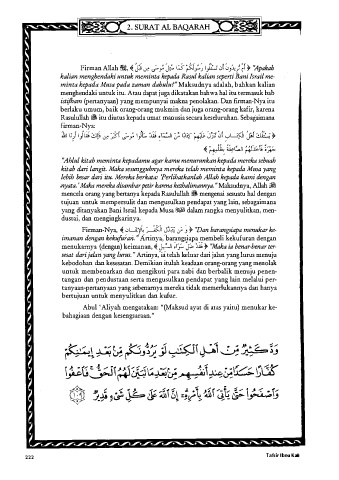 2. SURAT AL BAQARAH
Firman Allah ﷻ, ﴿ أَمْ تُرِيدُونَ أَن تَسْئَلُوا رَسُولَكُمْ كَمَا سُئِلَ مُوسَى مِن قَبْلُ ﴾ "Apakah
kalian menghendaki untuk meminta kepada Rasul kalian seperti Bani Israil me-
minta kepada Musa pada zaman dahulu?" Maksudnya adalah, bahkan kalian
menghendaki untuk itu. Atau dapat juga dikatakan bahwa hal itu termasuk bab
istifham (pertanyaan) yang mempunyai makna penolakan. Dan firman-Nya itu
berlaku umum, baik orang-orang mukmin dan juga orang-orang kafir, karena
Rasulullah ﷺ itu diutus kepada umat manusia secara keseluruhan. Sebagaimana
firman-Nya:
﴿ يَسْئَلُكَ أَهْلُ الْكِتَابِ أَن تُنَزِّلَ عَلَيْهِمْ كِتَابًا مِّنَ السَّمَاءِ فَقَدْ سَأَلُوا مُوسَى أَكْبَرَ مِن ذَلِكَ فَقَالُوا أَرِنَا اللهَ
جَهْرَةً فَأَخَذَتْهُمُ الصَّاعِقَةُ بِظُلْمِهِمْ ﴾
"Ahlul kitab meminta kepadamu agar kamu menurunkan kepada mereka sebuah
kitab dari langit. Maka sesungguhnya mereka telah meminta kepada Musa yang
lebih besar dari itu. Mereka berkata: 'Perlihatkanlah Allah kepada kami dengan
nyata.' Maka mereka disambar petir karena kezhalimannya." Maksudnya, Allah ﷻ
mencela orang yang bertanya kepada Rasulullah ﷺ mengenai sesuatu hal dengan
tujuan untuk mempersulit dan mengusulkan pendapat yang lain, sebagaimana
yang ditanyakan Bani Israil kepada Musa dalam rangka menyulitkan, men-
dustai, dan mengingkarinya.
Firman-Nya, ﴿ وَ مَن يَتَبَدَّلِ الْكُفْرَ بِالْإِيمَانِ ﴾ "Dan barangsiapa menukar ke-
imanan dengan kekufuran." Artinya, barangsiapa membeli kekufuran dengan
menukarnya (dengan) keimanan, ﴿ فَقَدْ ضَلَّ سَوَاءَ السَّبِيلِ ﴾ "Maka ia benar-benar ter-
sesat dari jalan yang lurus." Artinya, ia telah keluar dari jalan yang lurus menuju
kebodohan dan kesesatan. Demikian itulah keadaan orang-orang yang menolak
untuk membenarkan dan mengikuti para nabi dan berbalik menuju penen-
tangan dan pendustaan serta mengusulkan pendapat yang lain melalui per-
tanyaan-pertanyaan yang sebenarnya mereka tidak memerlukannya dan hanya
bertujuan untuk menyulitkan dan kufur.
Abul 'Aliyah mengatakan: "(Maksud ayat di atas yaitu) menukar ke-
bahagiaan dengan kesengsaraan."
وَدَّ كَثِيرٌ مِّنْ أَهْلِ الْكِتَابِ لَوْ يَرُدُّونَكُم مِّنْ بَعْدِ إِيمَانِكُمْ
كُفَّارًا حَسَدًا مِّنْ عِندِ أَنفُسِهِم مِّنْ بَعْدِ مَا تَبَيَّنَ لَهُمُ الْحَقُّ فَاعْفُوا
وَاصْفَحُوا حَتَّى يَأْتِيَ اللَّهُ بِأَمْرِهِ إِنَّ اللَّهَ عَلَى كُلِّ شَيْءٍ قَدِيرٌ ١٠٩
222
Tafsir Ibnu Katsir